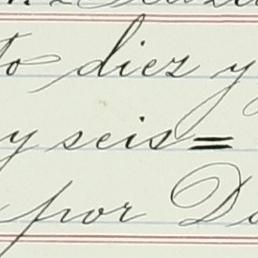 to diez y
y seis=
por D